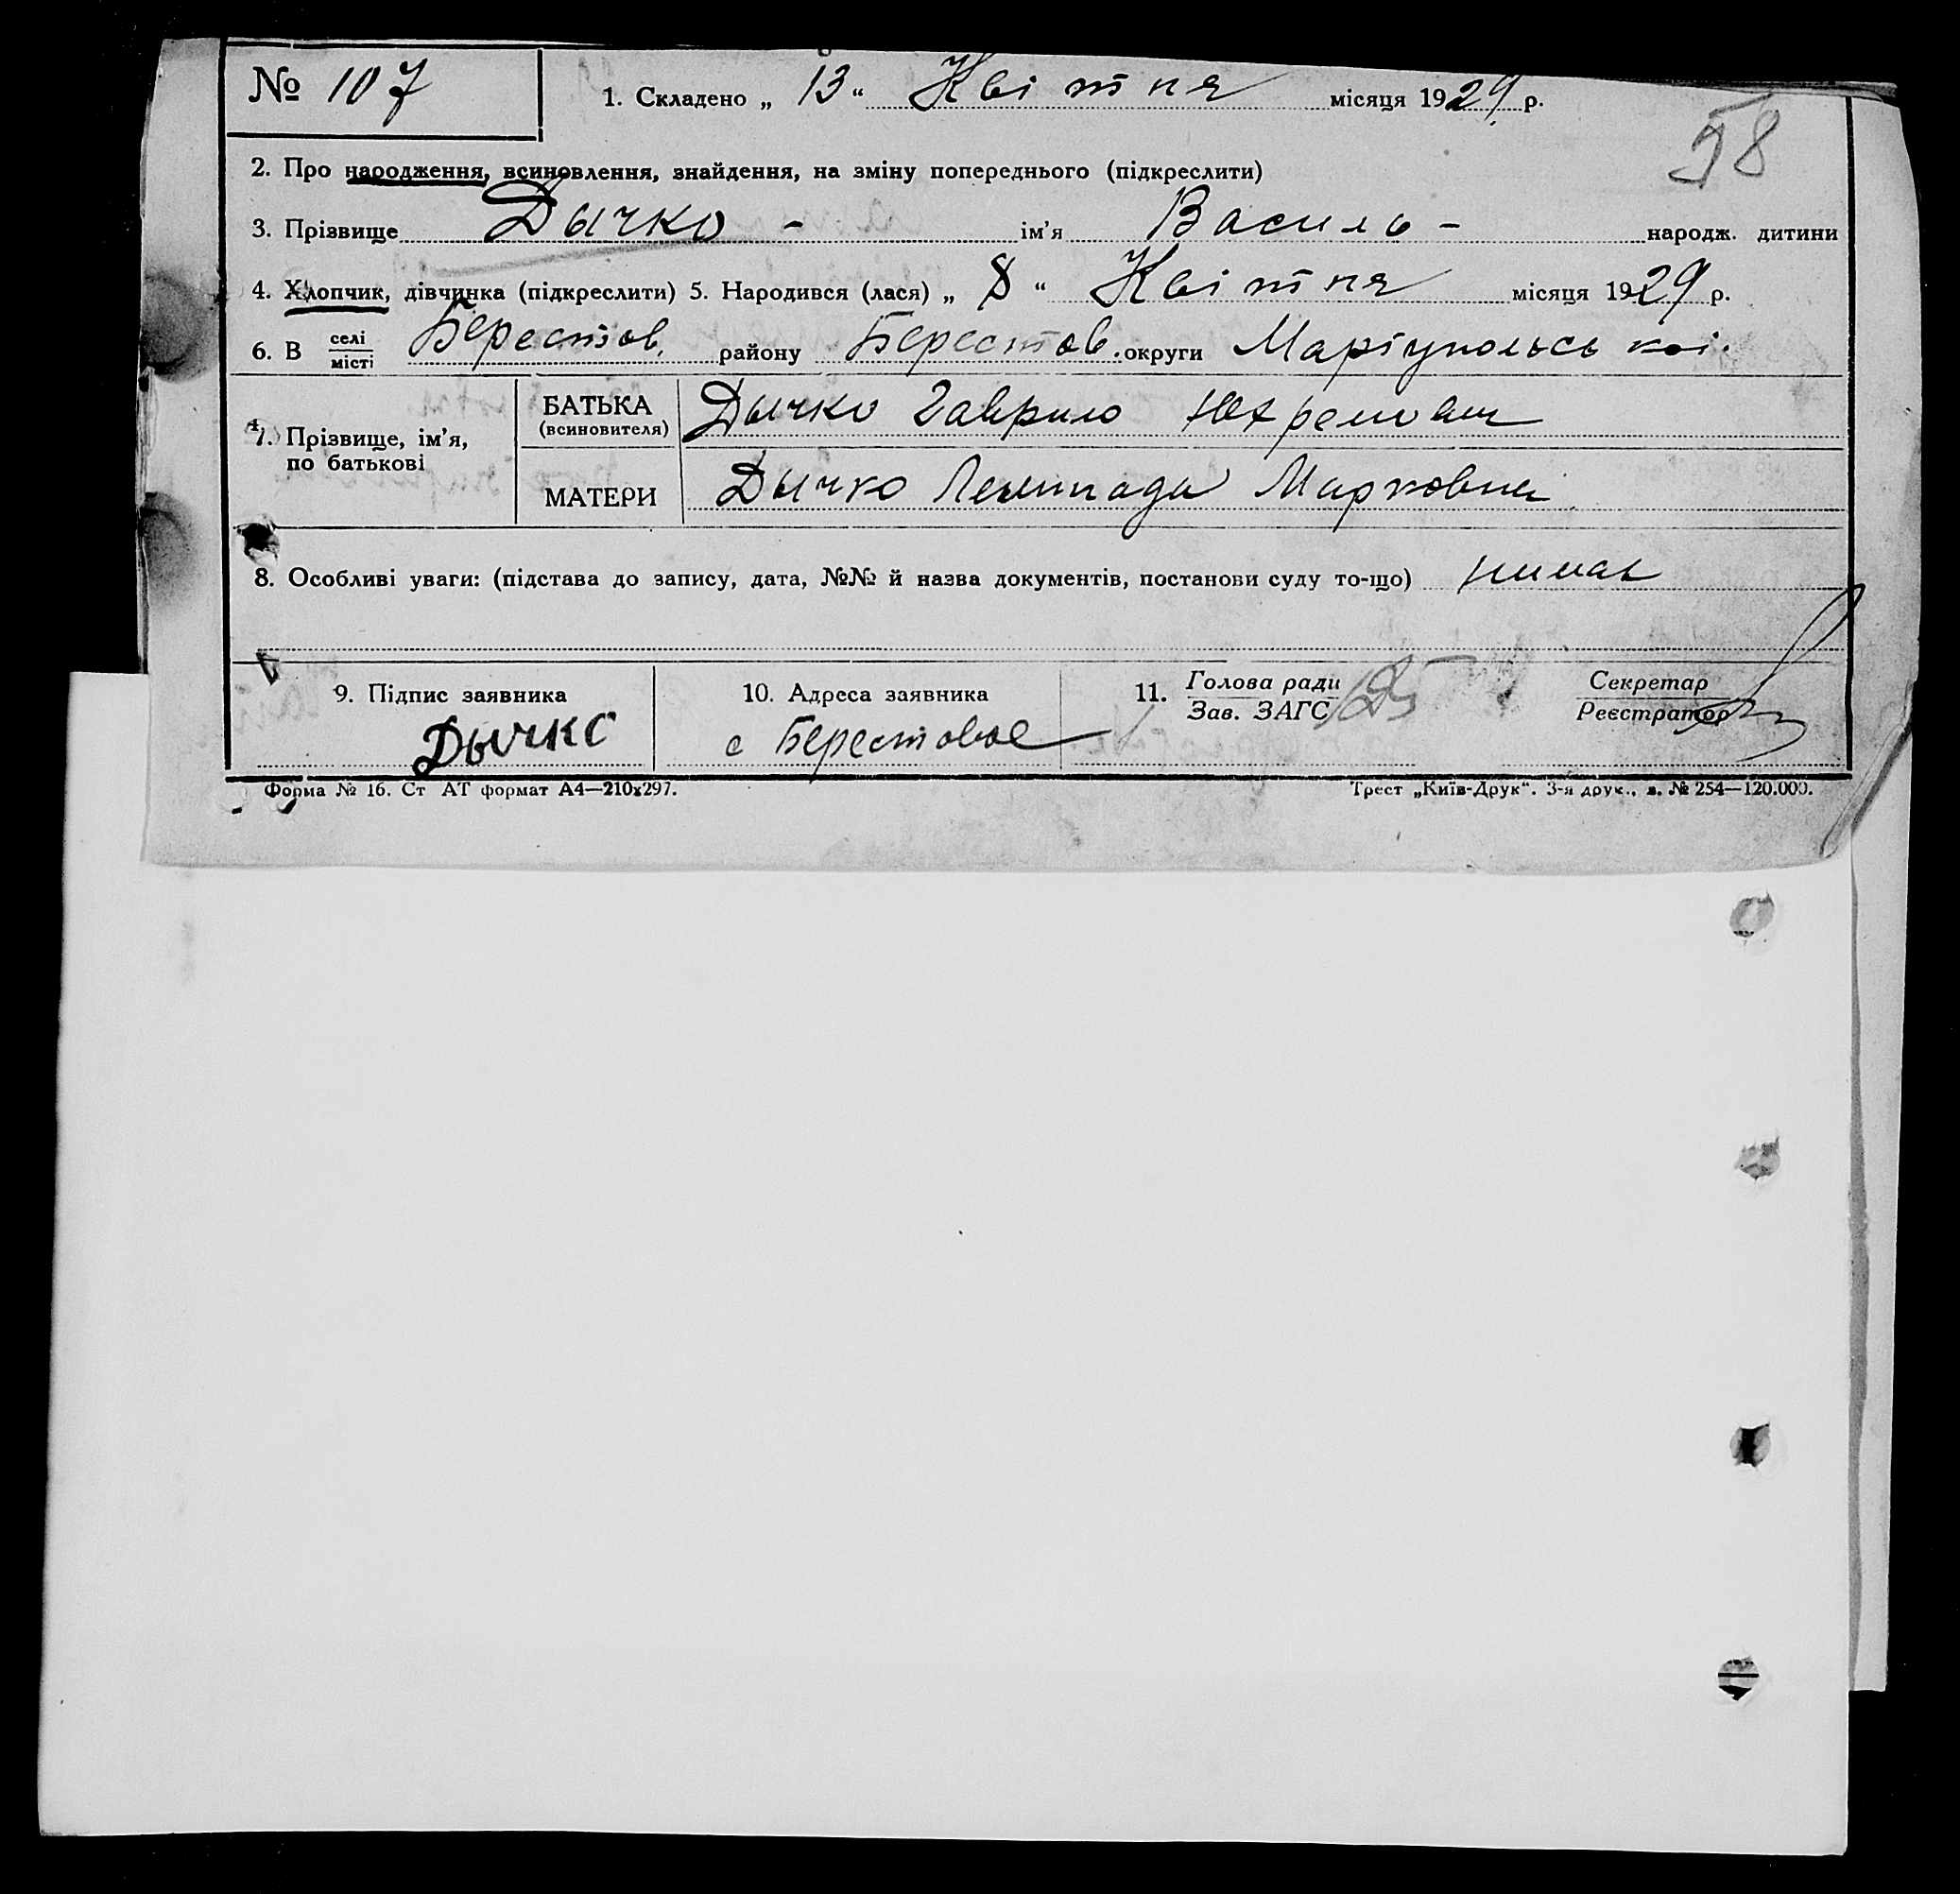 № 107
1. Складено „ 13 “ Квітня місяця 1929 р.
58
2. Про народження, всиновлення, знайдення, на зміну попереднього (підкреслити)
3. Прізвище Дычко - ім'я Василь - народж. дитини
4. Хлопчик, дівчинка (підкреслити) 5. Народився (лася) „ 8 “ Квітня місяця 1929 р.
6. В селі/місті Берестов. району Берестов. округи Маріупольської.
7. Прізвище, ім'я, по батькові
БАТЬКА (всиновителя) Дычко Гаврило
МАТЕРИ Дычко Марковна
8. Особливі уваги: (підстава до запису, дата, №№ й назва документів, постанови суду то-що) нимає
9. Підпис заявника
Дычко
10. Адреса заявника
с Берестовое
11. Голова ради
Зав. ЗАГС
Секретар
Реєстратор
Форма № 16. Ст АТ формат А4—210х297.
Трест „Київ-Друк“. 3-я друк., з. № 254—120.000.